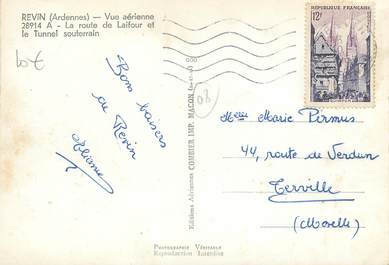 REVIN (Ardennes) — Vue aérienne
28914 A - La route de Laifour et
le Tunnel souterrain
10€
Bons baisers
de Revin
Eliane
Editions Aériennes COMBIER IMP. MACON (S.-et-L.)
08
RÉPUBLIQUE FRANÇAISE
12F
Mme Marie Pirmus
44, route de Verdun
Terville
(Moselle)
PHOTOGRAPHIE VÉRITABLE
Reproduction Interdite